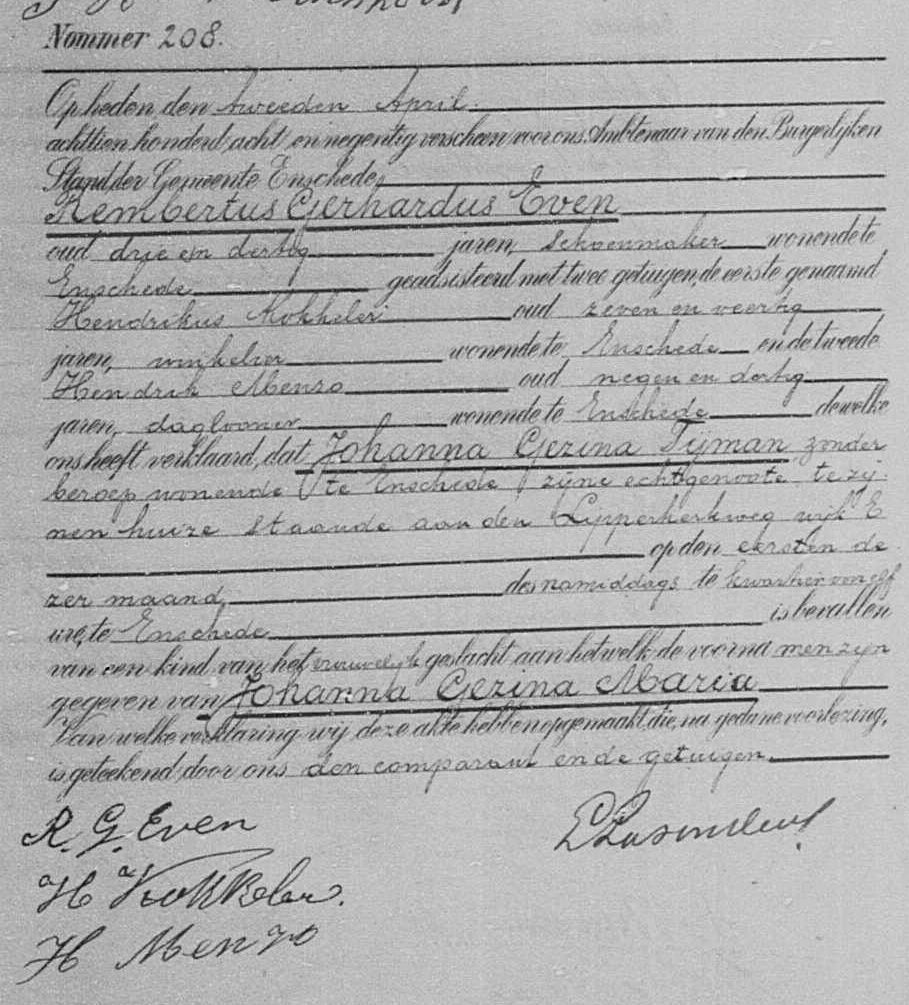 Nommer 208.
Op heden den tweeden April
achttien honderd acht en negentig verscheen voor ons Ambtenaar van den Burgerlijken
Stand der Gemeente Enschede,
Rembertus Gerhardus Even
oud drie en dertig jaren, schoenmaker wonende te
Enschede geadsisteerd met twee getuigen, de eerste genaamd
Hendrikus Kokkeler oud zeven en veertig
jaren, winkelier wonende te Enschede en de tweede
Hendrik Menzo oud negen en dertig
jaren, daglooner wonende te Enschede dewelke
ons heeft verklaard, dat Johanna Gezina Tijman zonder
beroep wonende te Enschede zijne echtgenoote te zij-
nen huize staande aan den Lipperkerkweg wijk E
op den eersten de-
zer maand, des namiddags te kwartier voor elf
ure, te Enschede is bevallen
van een kind van het vrouwelijk geslacht aan hetwelk de voornamen zijn
gegeven van Johanna Gezina Maria
Van welke verklaring wij deze akte hebben opgemaakt, die, na gedane voorlezing,
is geteekend door ons den comparant en de getuigen.
R. G. Even
H Kokkeler.
H Menzo